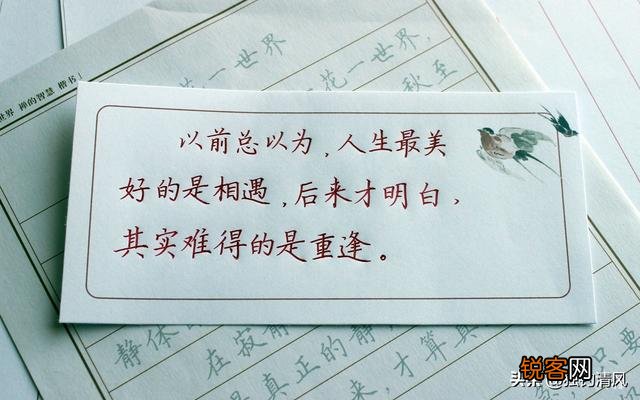 世界 禅的智慧 楷书
一世界
花一世界,
秋至
以前总以为,人生最美
好的是相遇,后来才明白,
其实难得的是重逢。
静体
在寂静
是真正的静
来,才算真
只要
头条
清风
锐客网